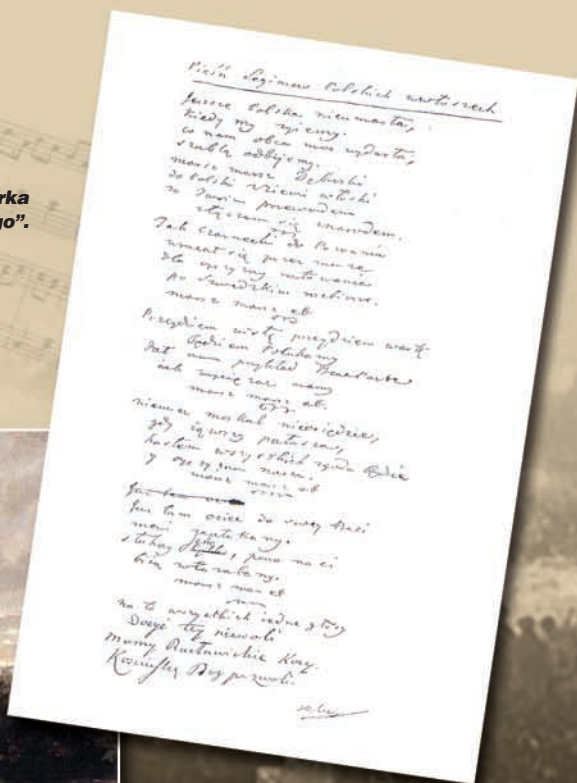 rka
go”.
Pieśń Legionow Polskich we Włoszech
Jeszcze Polska nieumarła,
kiedy my żyiemy.
co nam obca moc wydarła,
szablą odbijemy.
marsz marsz Dąbrowski
do Polski z ziemi włoski
za Twoim przewodem
złączem się z narodem.
Jak Czarnecki do Poznania
wracał się przez morze
dla oyczyzny ratowania
po Szwedzkim rozbiorze.
marsz marsz et
Przeydziem wisłę przeydziem wartę
będziem Polakami
dał nam przykład Bonaparte
iak zwyciężac mamy
marsz marsz et.
niemiec moskal nieosiędzie,
gdy iąwszy pałasza,
hasłem wszystkich zgoda będzie
y oyczyzna nasza.
marsz marsz et
Juz tam
Juz tam ociec do swey Basi
mowi zapłakany.
słuchay jeno, pono nasi
biją w tarabany.
marsz mar et
na to wszystkich iedne głosy
Dosyć tey niewoli
mamy Racławickie Kosy.
Kosciuszkę Bog pozwoli.